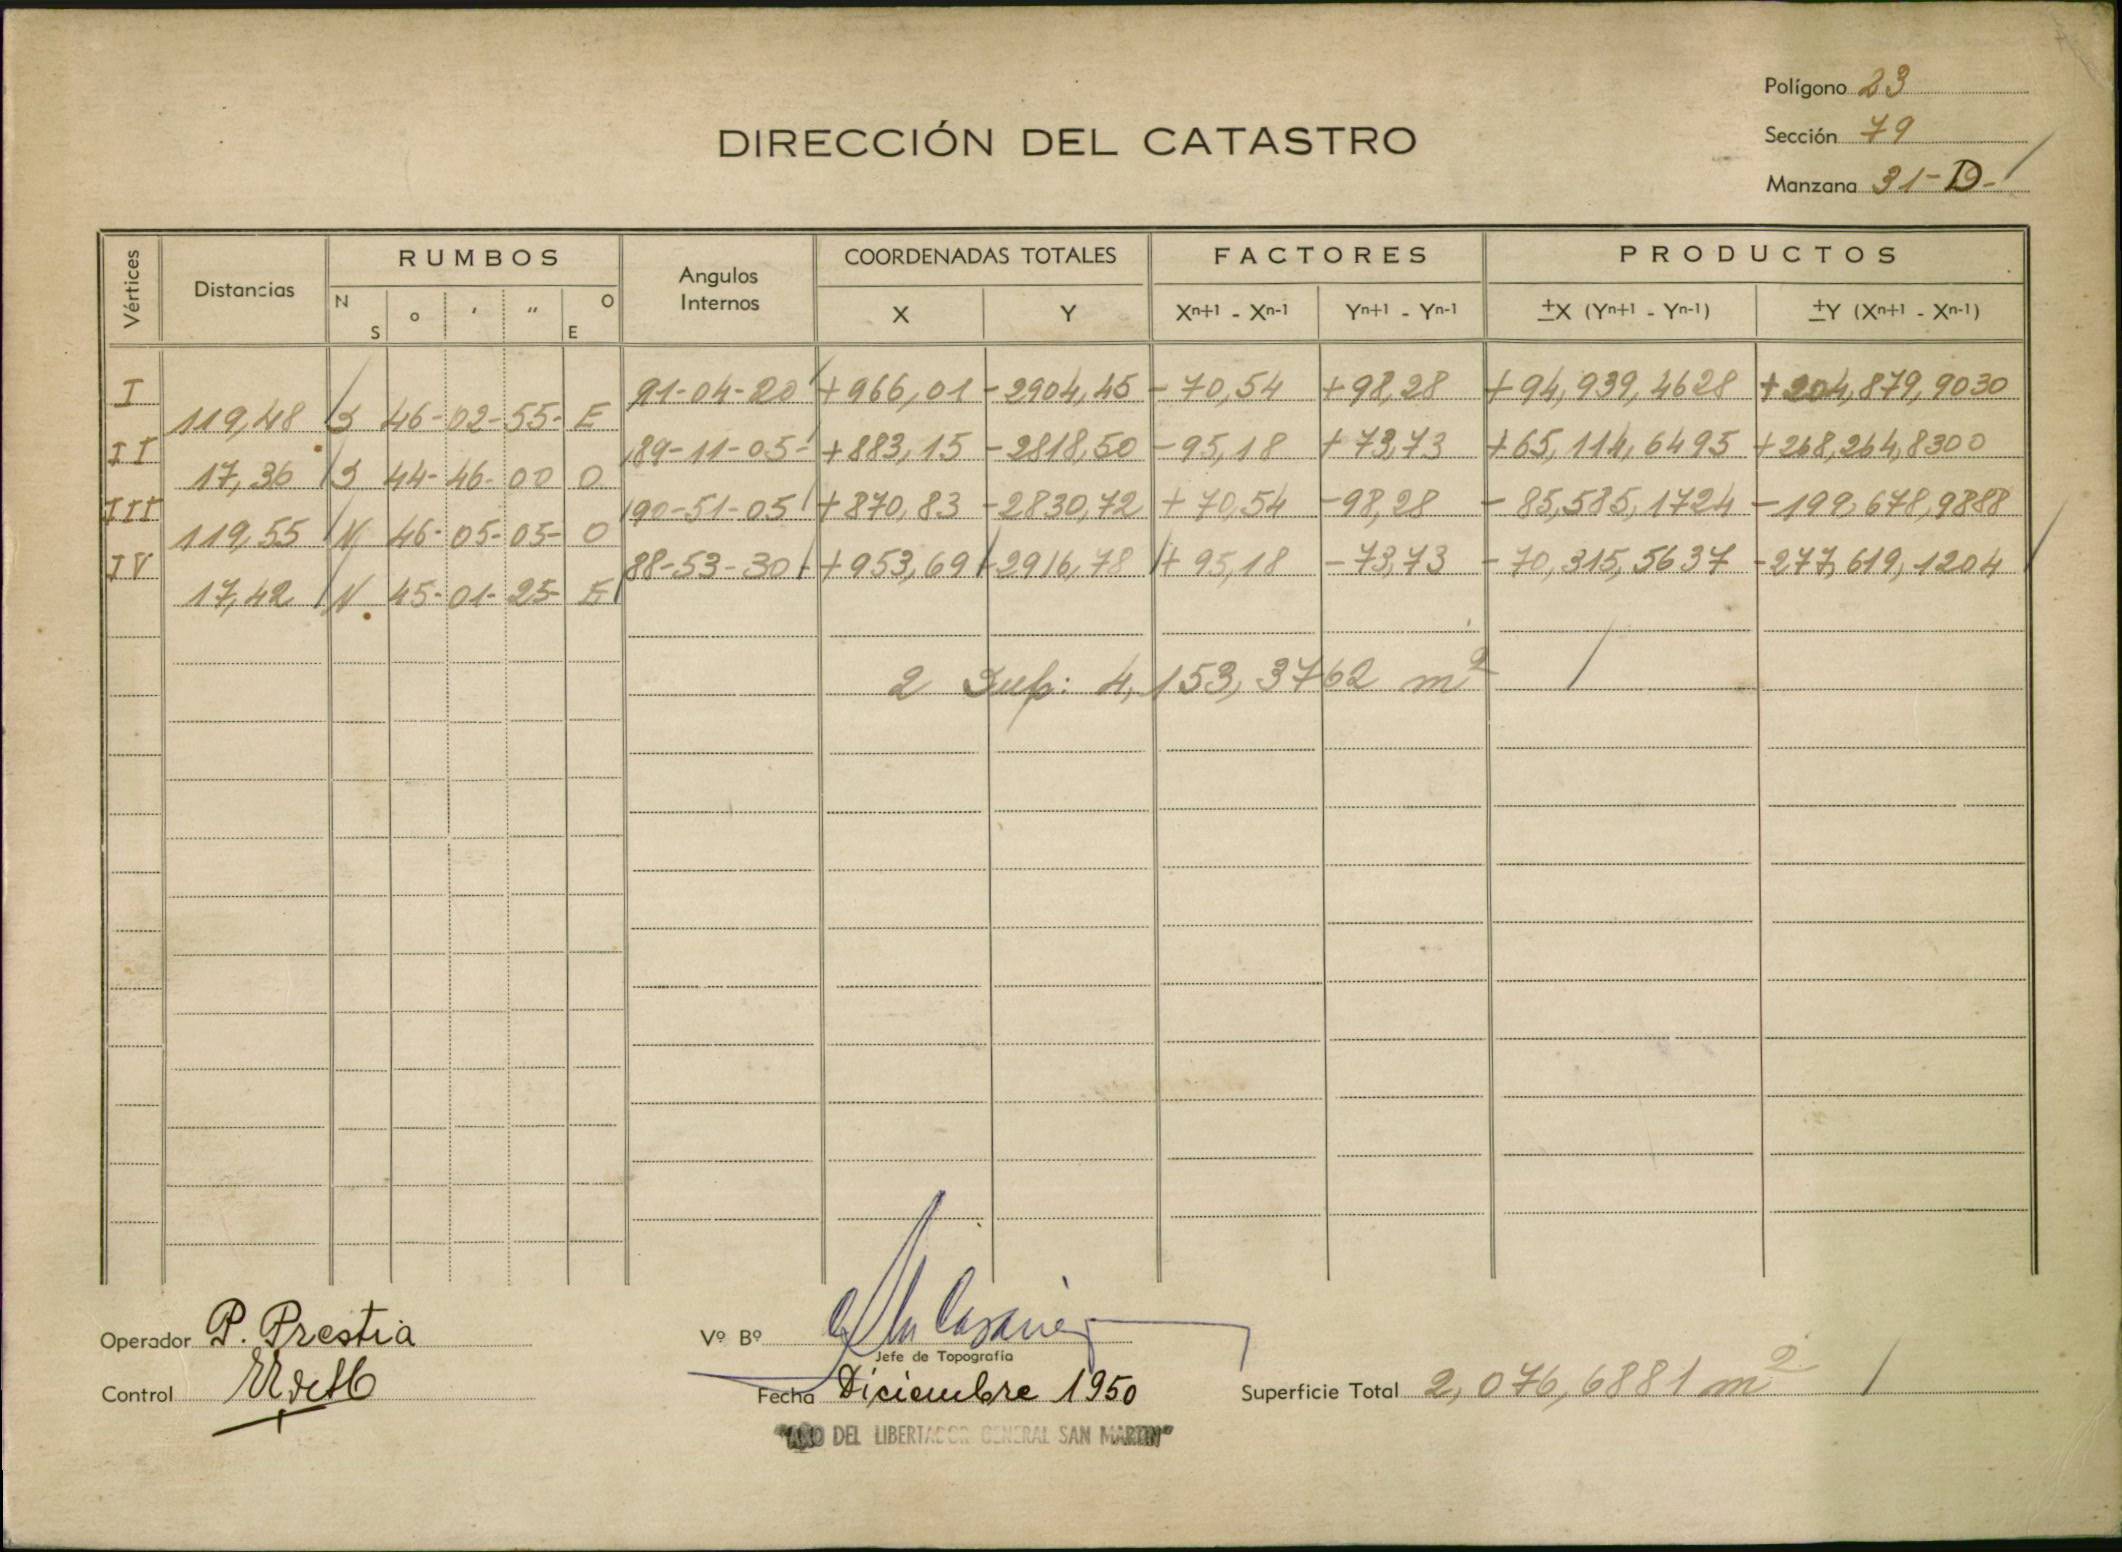 Polígono 23
Sección 79
Manzana 31-D-
DIRECCIÓN DEL CATASTRO
Vértices Distancias RUMBOS Angulos Internos COORDENADAS TOTALES FACTORES PRODUCTOS
N S o ' " O E X Y Xn+1 - Xn-1 Yn+1 - Yn-1 ±X (Yn+1 - Yn-1) ±Y (Xn+1 - Xn-1)
I 91-04-20 +966,01 -2904,45 -70,54 +98,28 +94,939,4628 +204,879,9030
119,48 S 46-02-55- E
II 89-11-05- +883,15 -2818,50 -95,18 +73,73 +65,114,6495 +268,264,8300
17,36 S 44-46-00 O
III 90-51-05 +870,83 -2830,72 +70,54 -98,28 -85,585,1724 -199,678,9888
119,55 N 46-05-05- O
IV 88-53-30- +953,69 -2916,78 +95,18 -73,73 -70,315,5637 -277,619,1204
17,42 N 45-01-25- E
2 Sup: 4,153,3762 m2
Operador P. Prestia
Vº Bº
Jefe de Topografía
Control
Fecha Diciembre 1950
Superficie Total 2,076,6881 m2
"AÑO DEL LIBERTADOR GENERAL SAN MARTIN"